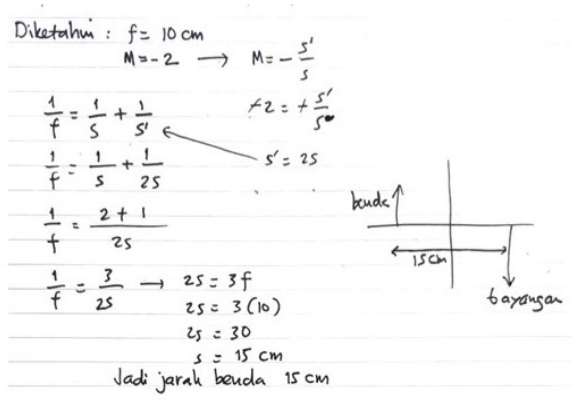 Diketahui : f = 10 cm
M = -2 → M = - s'/s
1/f = 1/s + 1/s'
-2 = - s'/s
1/f = 1/s + 1/2s
s' = 2s
1/f = 2 + 1 / 2s
1/f = 3/2s → 2s = 3f
2s = 3(10)
2s = 30
s = 15 cm
Jadi jarak benda 15 cm
benda
15 cm
bayangan